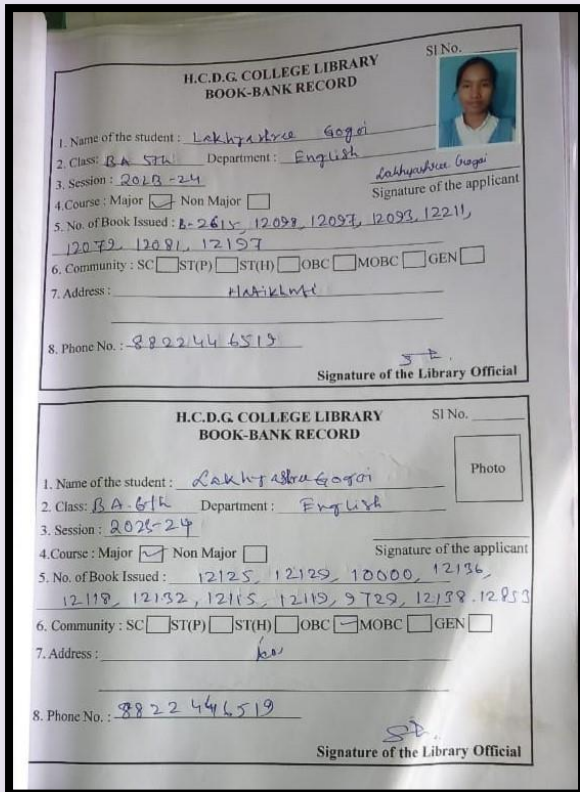 Sl No.
H.C.D.G. COLLEGE LIBRARY
BOOK-BANK RECORD
1. Name of the student : Lakhyashree Gogoi
2. Class: BA 5th Department : English
3. Session : 2023-24
Lakhyashree Gogoi
Signature of the applicant
4.Course : Major ✓ Non Major
5. No. of Book Issued : B-2615, 12098, 12097, 12093, 12211,
12079, 12081, 12197
6. Community : SC ST(P) ST(H) OBC MOBC GEN
7. Address : Hatikhuti
8. Phone No. : 8822446519
Signature of the Library Official
H.C.D.G. COLLEGE LIBRARY
BOOK-BANK RECORD
Sl No.
Photo
1. Name of the student : Lakhyashree Gogoi
2. Class: BA-6th Department : English
3. Session : 2023-24
4.Course : Major ✓ Non Major
Signature of the applicant
5. No. of Book Issued : 12125, 12129, 10000, 12136,
12118, 12132, 12115, 12119, 9729, 12138, 12853
6. Community : SC ST(P) ST(H) OBC ✓ MOBC GEN
7. Address :
8. Phone No. : 8822446519
Signature of the Library Official